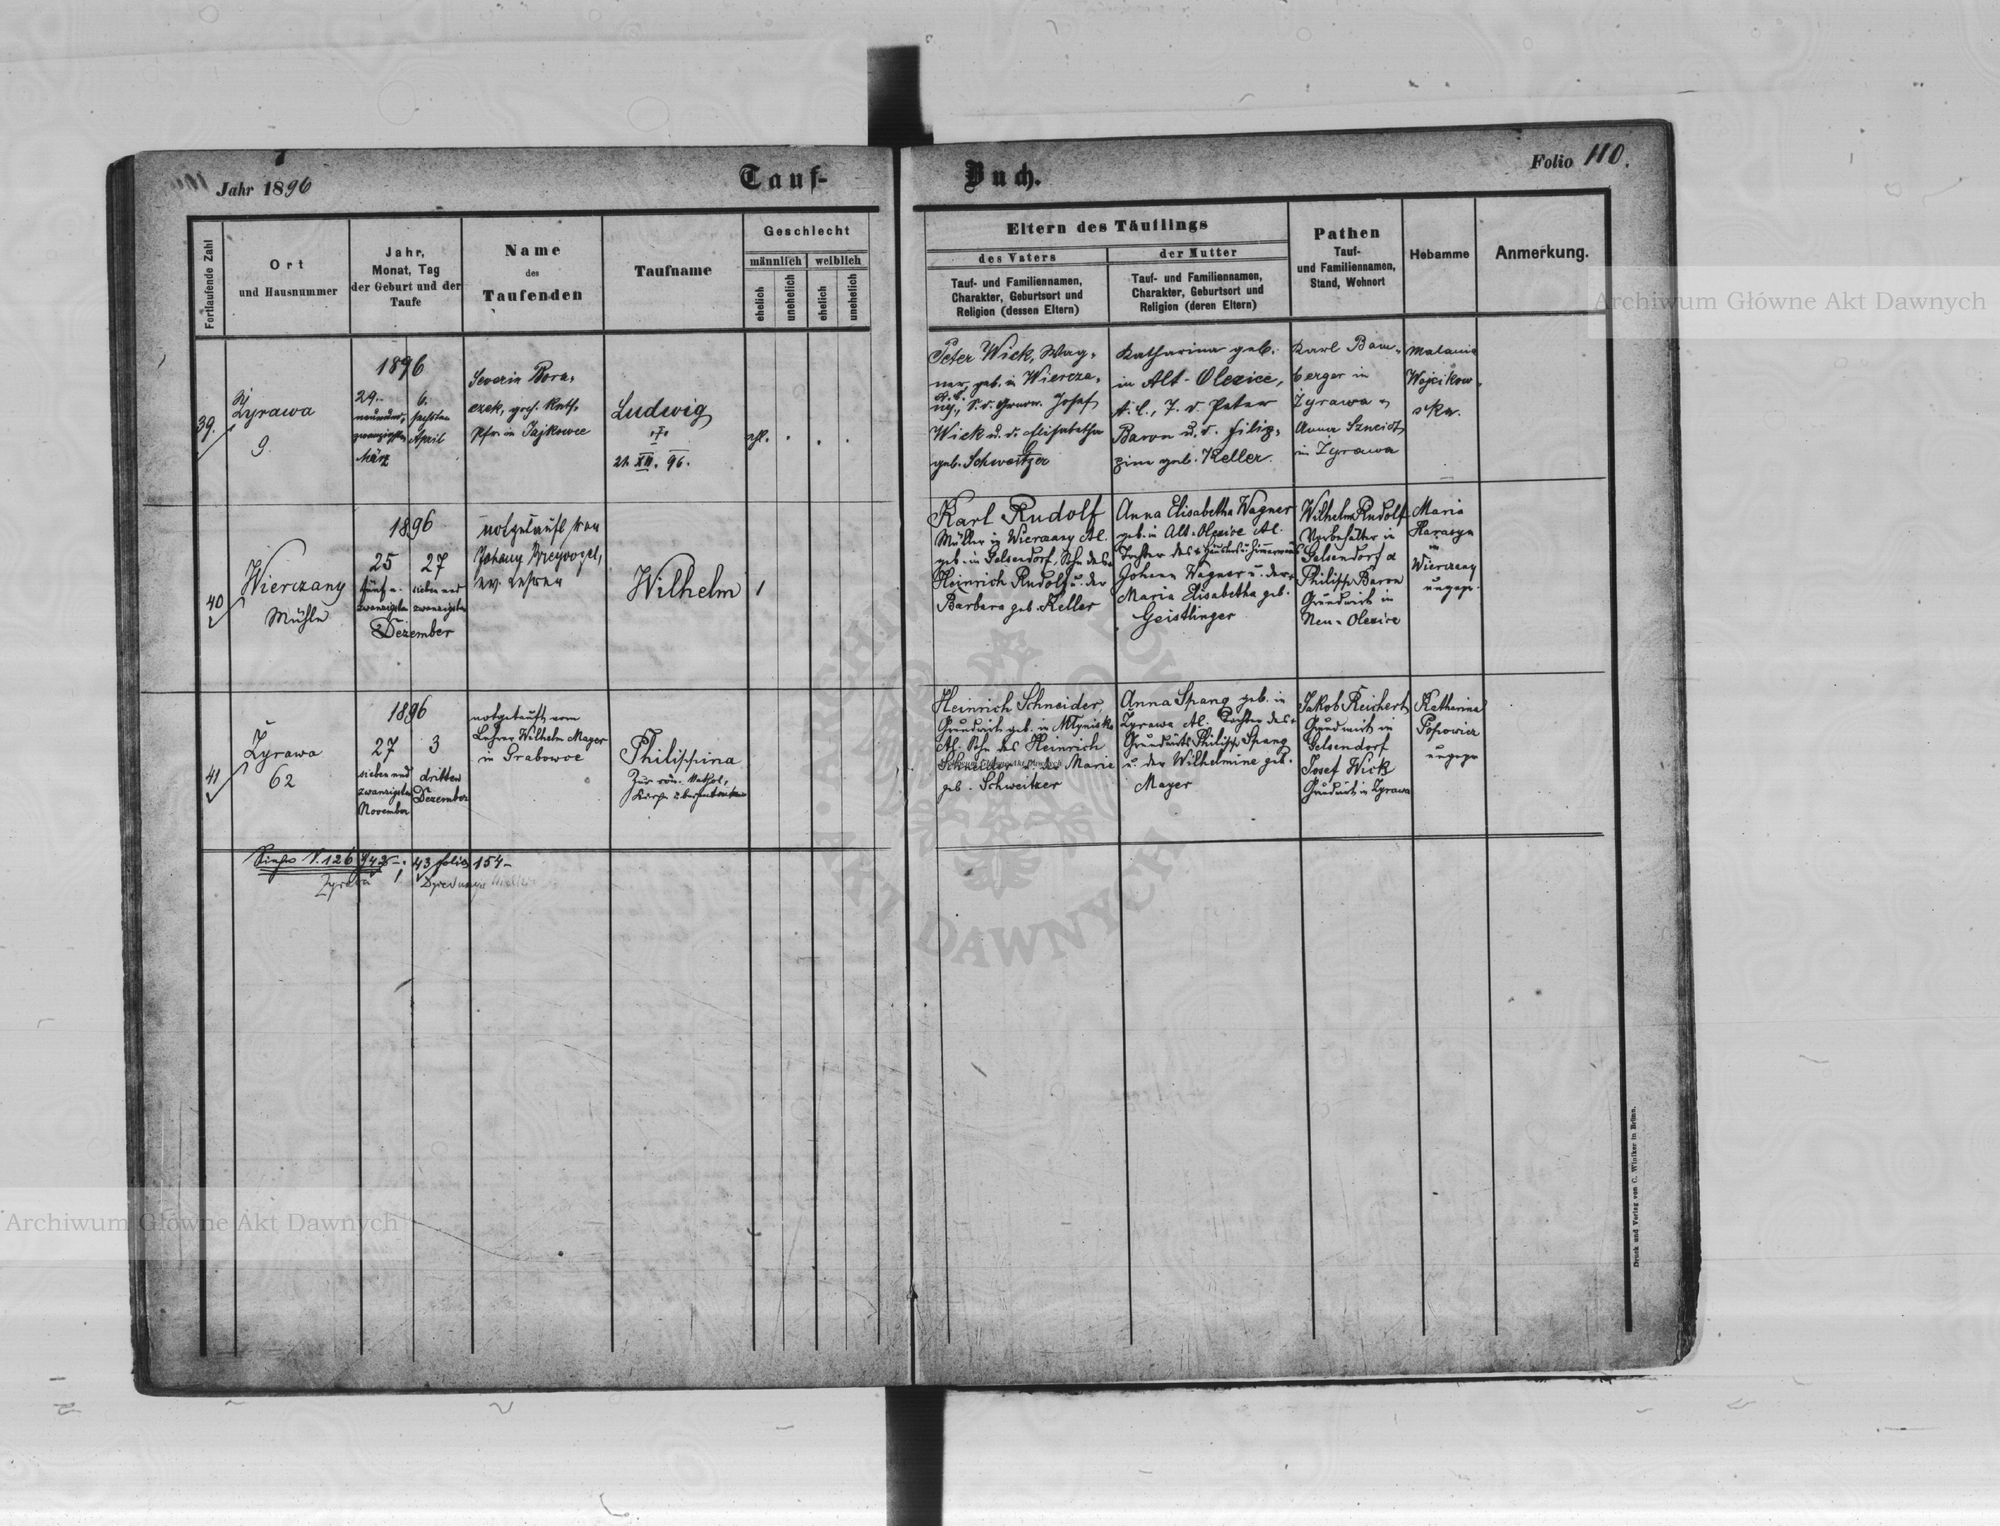 Jahr 1896
Tauf-
Buch.
Folio 110.
Fortlaufende Zahl
Ort
und Hausnummer
Jahr,
Monat, Tag
der Geburt und der
Taufe
Name
des
Taufenden
Taufname
Geschlecht
männlich
weiblich
ehelich
unehelich
ehelich
unehelich
Eltern des Täuflings
des Vaters
Tauf- und Familiennamen,
Charakter, Geburtsort und
Religion (dessen Eltern)
der Mutter
Tauf- und Familiennamen,
Charakter, Geburtsort und
Religion (deren Eltern)
Pathen
Tauf-
und Familiennamen,
Stand, Wohnort
Hebamme
Anmerkung.
39.
Żyrawa
9.
1896
29.
März
6.
April
Severin Bora,
czek,
in Jajkowce
Ludwig
†
21. XII. 96.
Peter Wick, Wag,
ner, geb. in Wiercza,
ny, S. d. Josef
Wick u. d. Elisabetha
geb. Schweitzer
Katharina geb.
in Alt-Olexice,
A. C., T. d. Peter
Baron u. d. Filip,
pine geb. Keller.
Karl Bam,
berger in
Żyrawa u
Anna
in Żyrawa
Malania
Wojcikow,
ska.
40
Wierczany
Mühle
1896
25
fünf u.
zwanzigsten
27
sieben und
zwanzigsten
Dezember
notgetauft von
Johann Breyvogel,
ev. Lehrer
Wilhelm
1
Karl Rudolf
Müller in Wierczany AC.
geb. in Gelsendorf, Sohn des
Heinrich Rudolf u. der
Barbara geb. Keller
Anna Elisabetha Wagner
geb. in Alt-Olexice AC.
Tochter des
Johann Wagner u. der
Maria Elisabetha geb.
Geistlinger
Wilhelm Rudolf
in
Gelsendorf &
Philipp Baron
Grundwirt in
Neu-Olexice
Maria
Harasyn
in
Wierczany
ungepr.
41
Żyrawa
62
1896
27
sieben und
zwanzigsten
November
3
dritten
Dezember
notgetauft vom
Lehrer Wilhelm Mayer
in Grabowce
Philippina
Zur röm. kathol.
Kirche übergetreten
Heinrich Schneider,
Grundwirt geb. in Młyniska
AC. Sohn des Heinrich
Schneider u. der Marie
geb. Schweitzer
Anna Spang geb. in
Żyrawa AC. Tochter des
Grundwirts Philipp Spang
u. der Wilhelmine geb.
Mayer
Jakob Reichert
Grundwirt in
Gelsendorf
Josef Wick
Grundwirt in Żyrawa
Katharina
Popowicz
ungepr
Siehe S. 126 43 folio 154
Żyrawa
Druck und Verlag von C. Winiker in Brünn.
Archiwum Główne Akt Dawnych
Archiwum Główne Akt Dawnych
ARCHIWUM GŁÓWNE AKT DAWNYCH